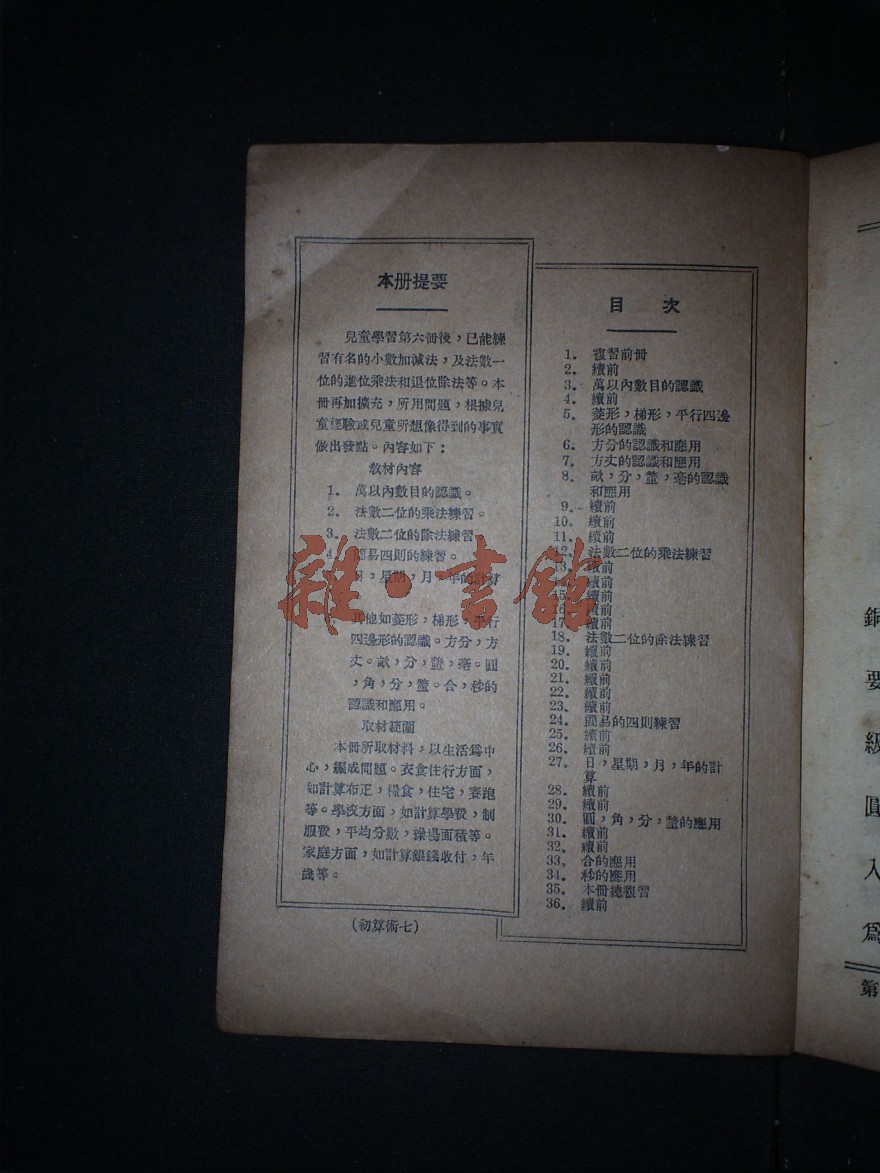 本册提要
兒童學習第六冊後，已能練
習有名的小數加減法，及法數一
位的進位乘法和退位除法等。本
冊再加擴充，所用問題，根據兒
童經驗或兒童所想像得到的事實
做出發點。內容如下：
教材內容
1. 萬以內數目的認識。
2. 法數二位的乘法練習。
3. 法數二位的除法練習
4. 簡易四則的練習。
，星期，月，年的計算
其他如菱形，梯形，平行
四邊形的認識。方分，方
丈。畝，分，釐，毫。圓
，角，分，釐。合，秒的
認識和應用。
取材範圍
本冊所取材料，以生活爲中
心，編成問題。衣食住行方面，
如計算布疋，糧食，住宅，賽跑
等。學校方面，如計算學費，制
服費，平均分數，操場面積等。
家庭方面，如計算銀錢收付，年
歲等。
(初算術七)
目 次
1. 複習前冊
2. 續前
3. 萬以內數目的認識
4. 續前
5. 菱形，梯形，平行四邊
形的認識
6. 方分的認識和應用
7. 方丈的認識和應用
8. 畝，分，釐，毫的認識
和應用
9. 續前
10. 續前
11. 續前
12. 法數二位的乘法練習
13. 續前
14. 續前
15. 續前
16. 續前
17. 續前
18. 法數二位的除法練習
19. 續前
20. 續前
21. 續前
22. 續前
23. 續前
24. 簡易的四則練習
25. 續前
26. 續前
27. 日，星期，月，年的計
算
28. 續前
29. 續前
30. 圓，角，分，釐的應用
31. 續前
32. 續前
33. 合的應用
34. 秒的應用
35. 本冊總複習
36. 續前
雜·書館
銅
要
級
圓
入
爲
第